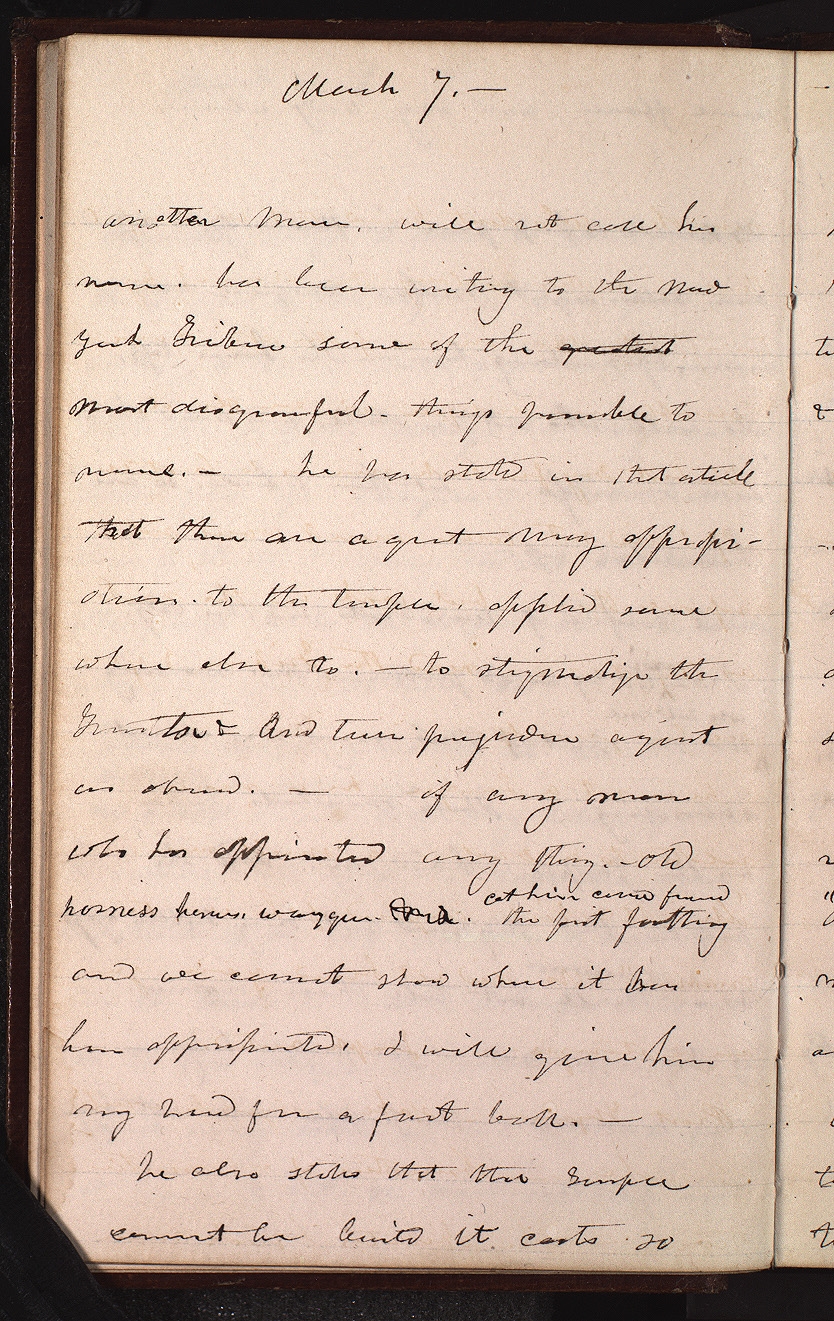 March 7.—
another man. will not call his
name. has been writing to the New
York Tribune some of the greatest
most disgraceful. things possible to
name.— he has stated in that article
that there are a great many appropri-
ations. to the temple. applied some
where else to.— to stigmatize the
Trustees And turn prejudice against
us abroad.— if any man
who has appropriated any thing.— old
let him come & find
harness horses. waggon. the first farthing
and we cannot show where it has
been appropriated, I will give him
my head for a foot ball.—
he also states that the Temple
cannot be built it costs so